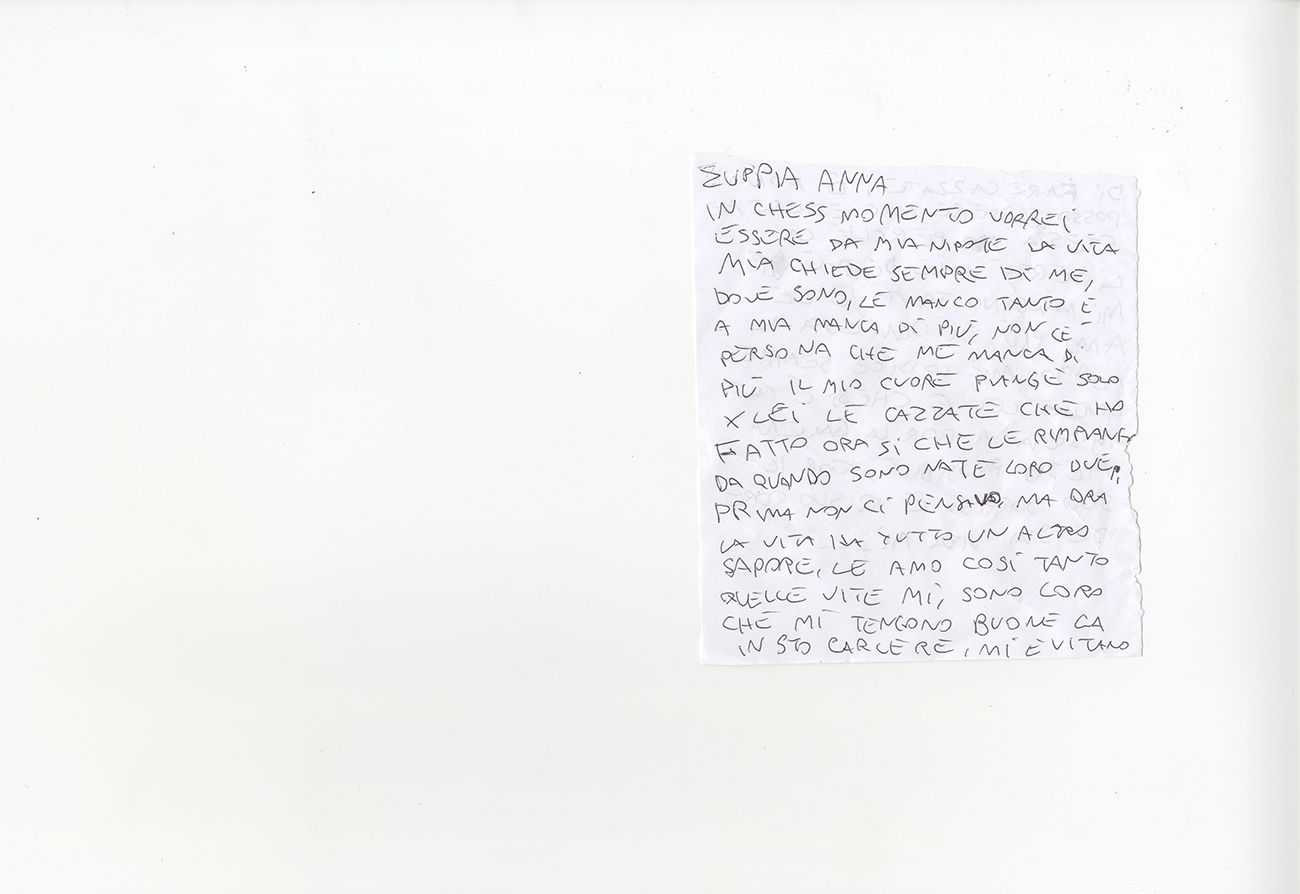 ZUPPIA ANNA
IN CHESS MOMENTO VORREI
ESSERE DA MIA NIPOTE LA VITA
MIA CHIEDE SEMPRE DI ME,
DOVE SONO, LE MANCO TANTO E
A MIA MANCA DI PIÙ, NON CÈ
PERSONA CHE ME MANCA DI
PIÙ IL MIO CUORE PIANGE SOLO
X LEI LE CAZZATE CHE HO
FATTO ORA SI CHE LE RIMPIANGO
DA QUANDO SONO NATE LORO DUE,
PRIMA NON CI PENSAVO, MA ORA
LA VITA HA TUTTO UN ALTRO
SAPORE, LE AMO COSÌ TANTO
QUELLE VITE MÌ, SONO LORO
CHE MI TENGONO BUONE CA
IN STO CARCERE, MI EVITANO